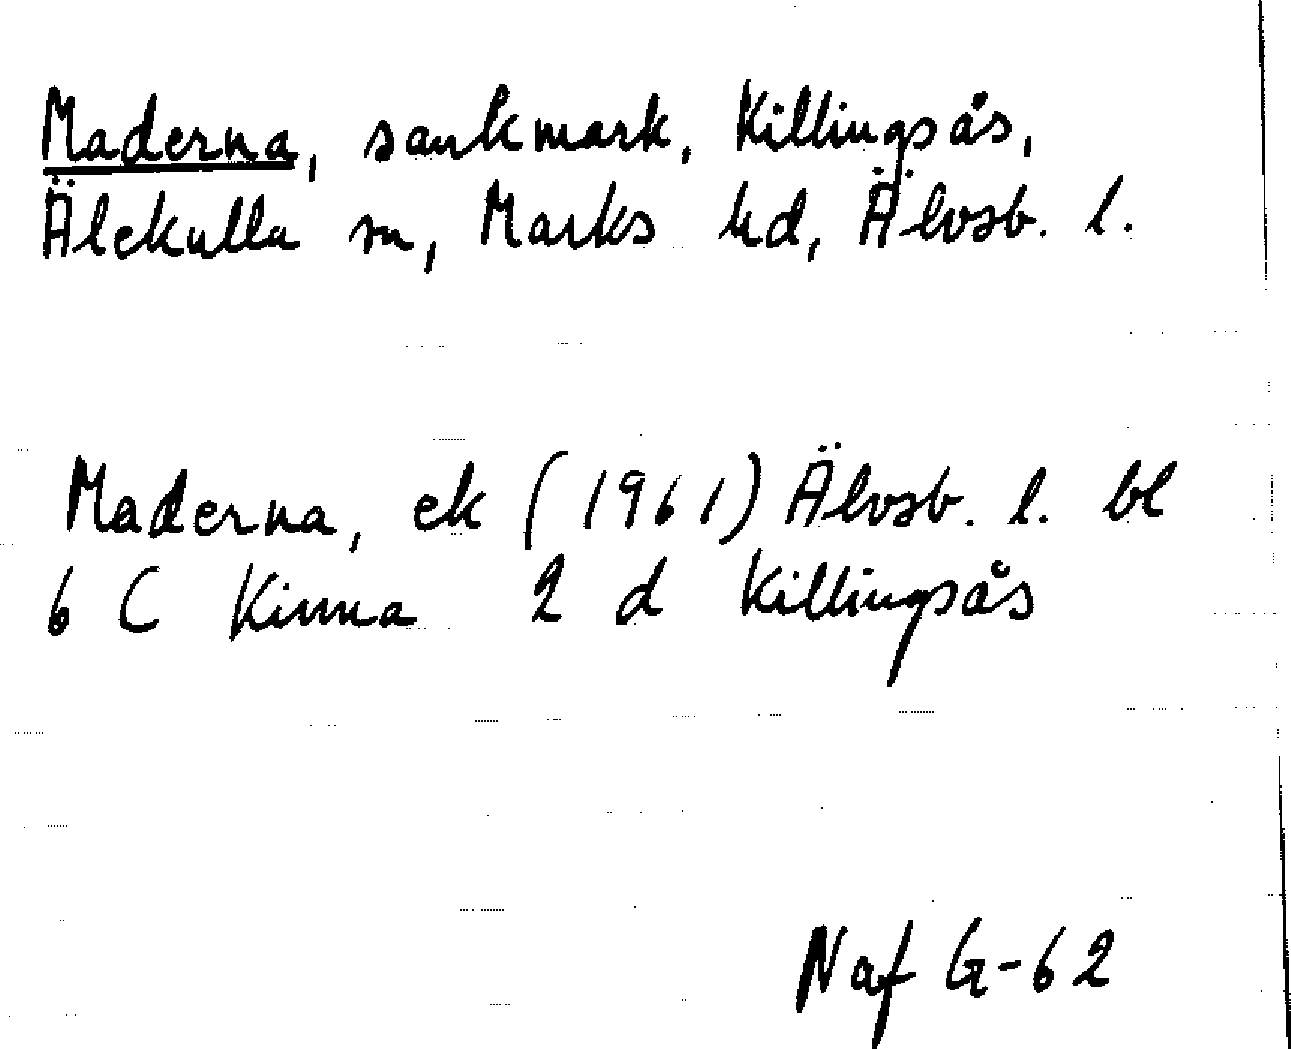 Maderna, sankmark, Killingsås,
Älekulla sn, Marks hd, Älvsb. l.
Maderna, ek (1961) Älvsb. l. bl
6 C Kinna 2 d Killingsås
Naf G-62